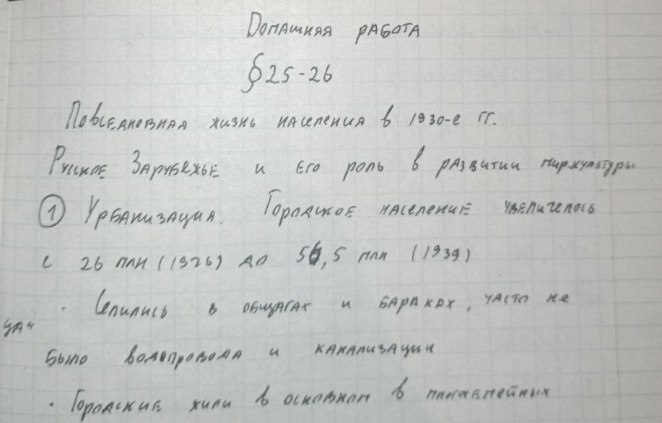 Домашняя работа
§ 25-26
Повседневная жизнь населения в 1930-е гг.
Русское Зарубежье и его роль в развитии миркультуры
① Урбанизация. Городское население увеличелось
с 26 млн (1926) до 56,5 млн (1939)
· Селились в общагах и бараках, часто не
было водопровода и канализации
· Городские жили в основном в